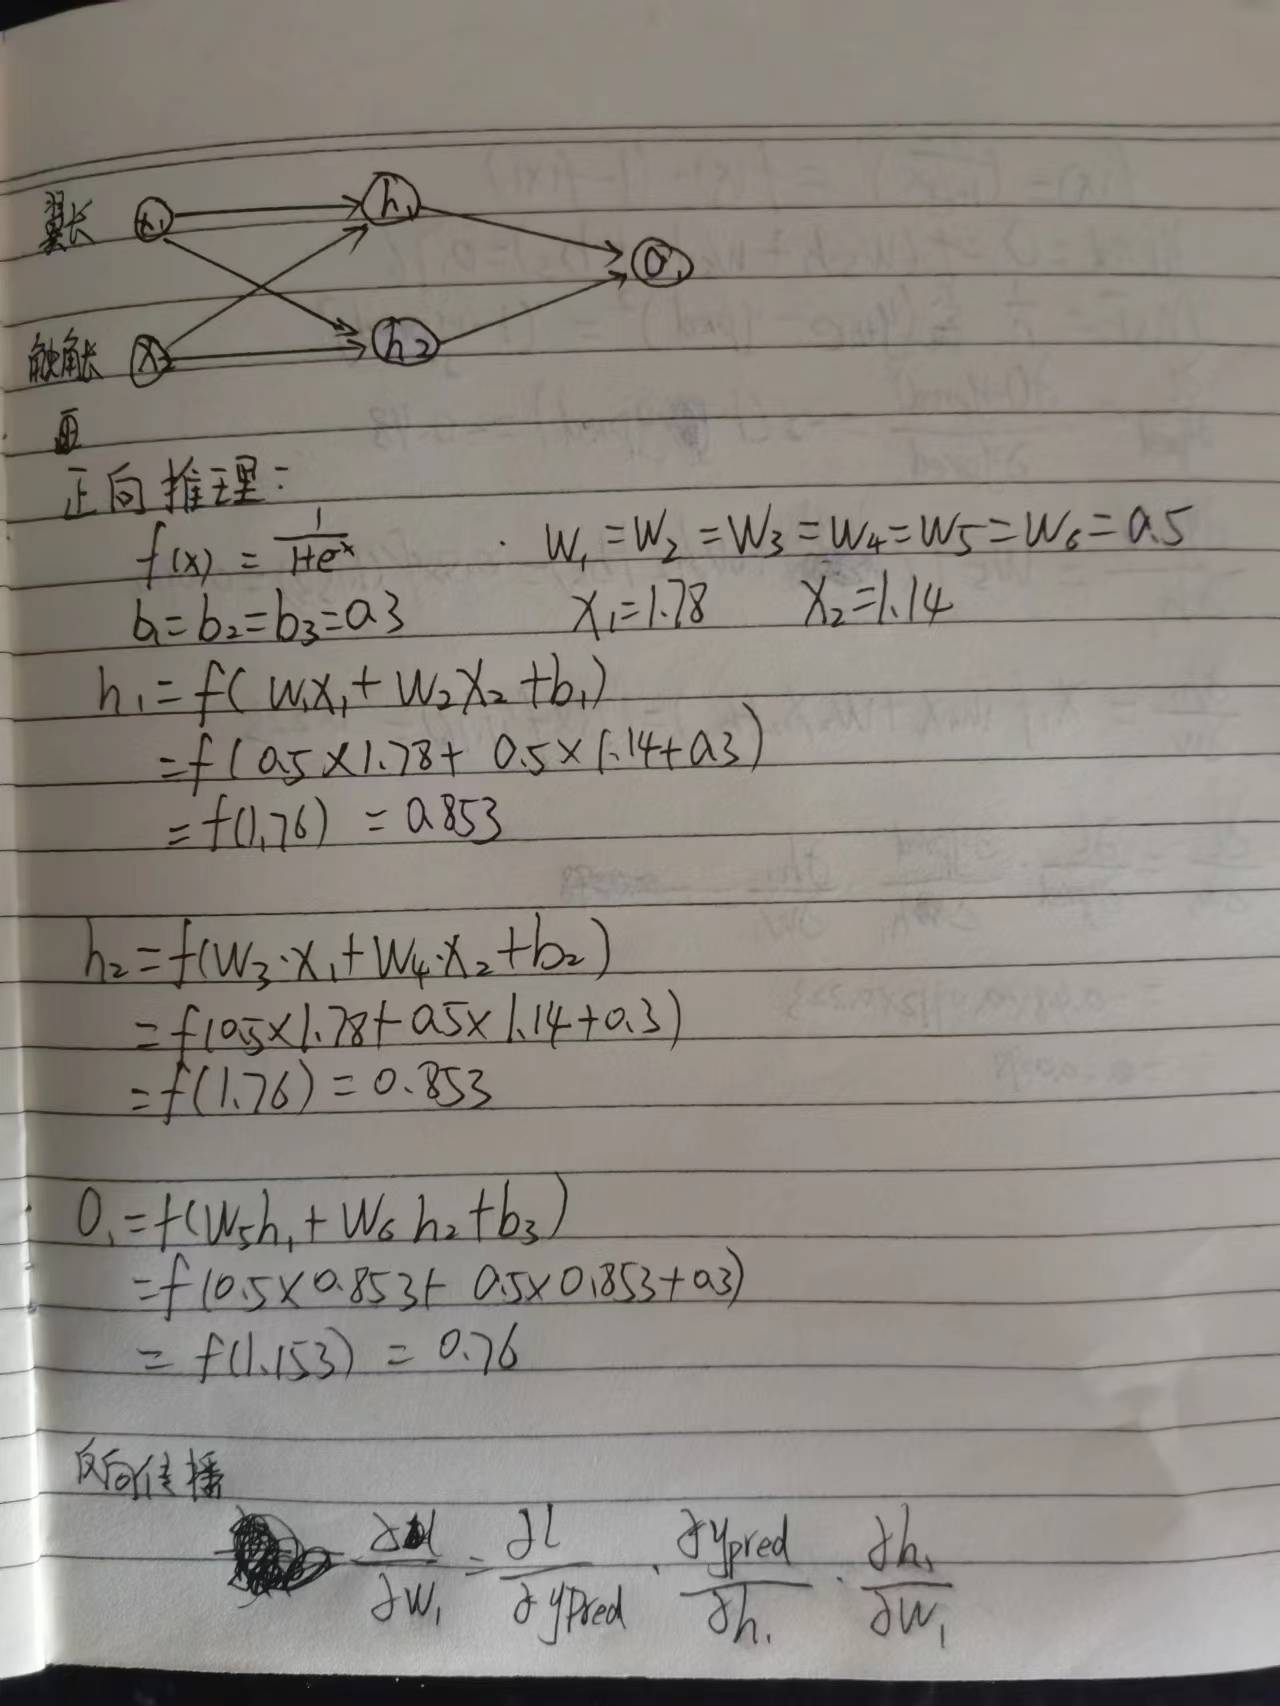 翼长 x₁ h₁
O₁
触角长 x₂ h₂
正向推理:
f(x) = 1/(1+eˣ) · W₁=W₂=W₃=W₄=W₅=W₆=0.5
b₁=b₂=b₃=0.3 X₁=1.78 X₂=1.14
h₁=f(W₁X₁+W₂X₂+b₁)
=f(0.5×1.78+0.5×1.14+0.3)
=f(1.76)=0.853
h₂=f(W₃·X₁+W₄·X₂+b₂)
=f(0.5×1.78+0.5×1.14+0.3)
=f(1.76)=0.853
O₁=f(W₅h₁+W₆h₂+b₃)
=f(0.5×0.853+0.5×0.853+0.3)
=f(1.153)=0.76
反向传播
∂l/∂W₁=∂l/∂ypred·∂ypred/∂h₁·∂h₁/∂W₁